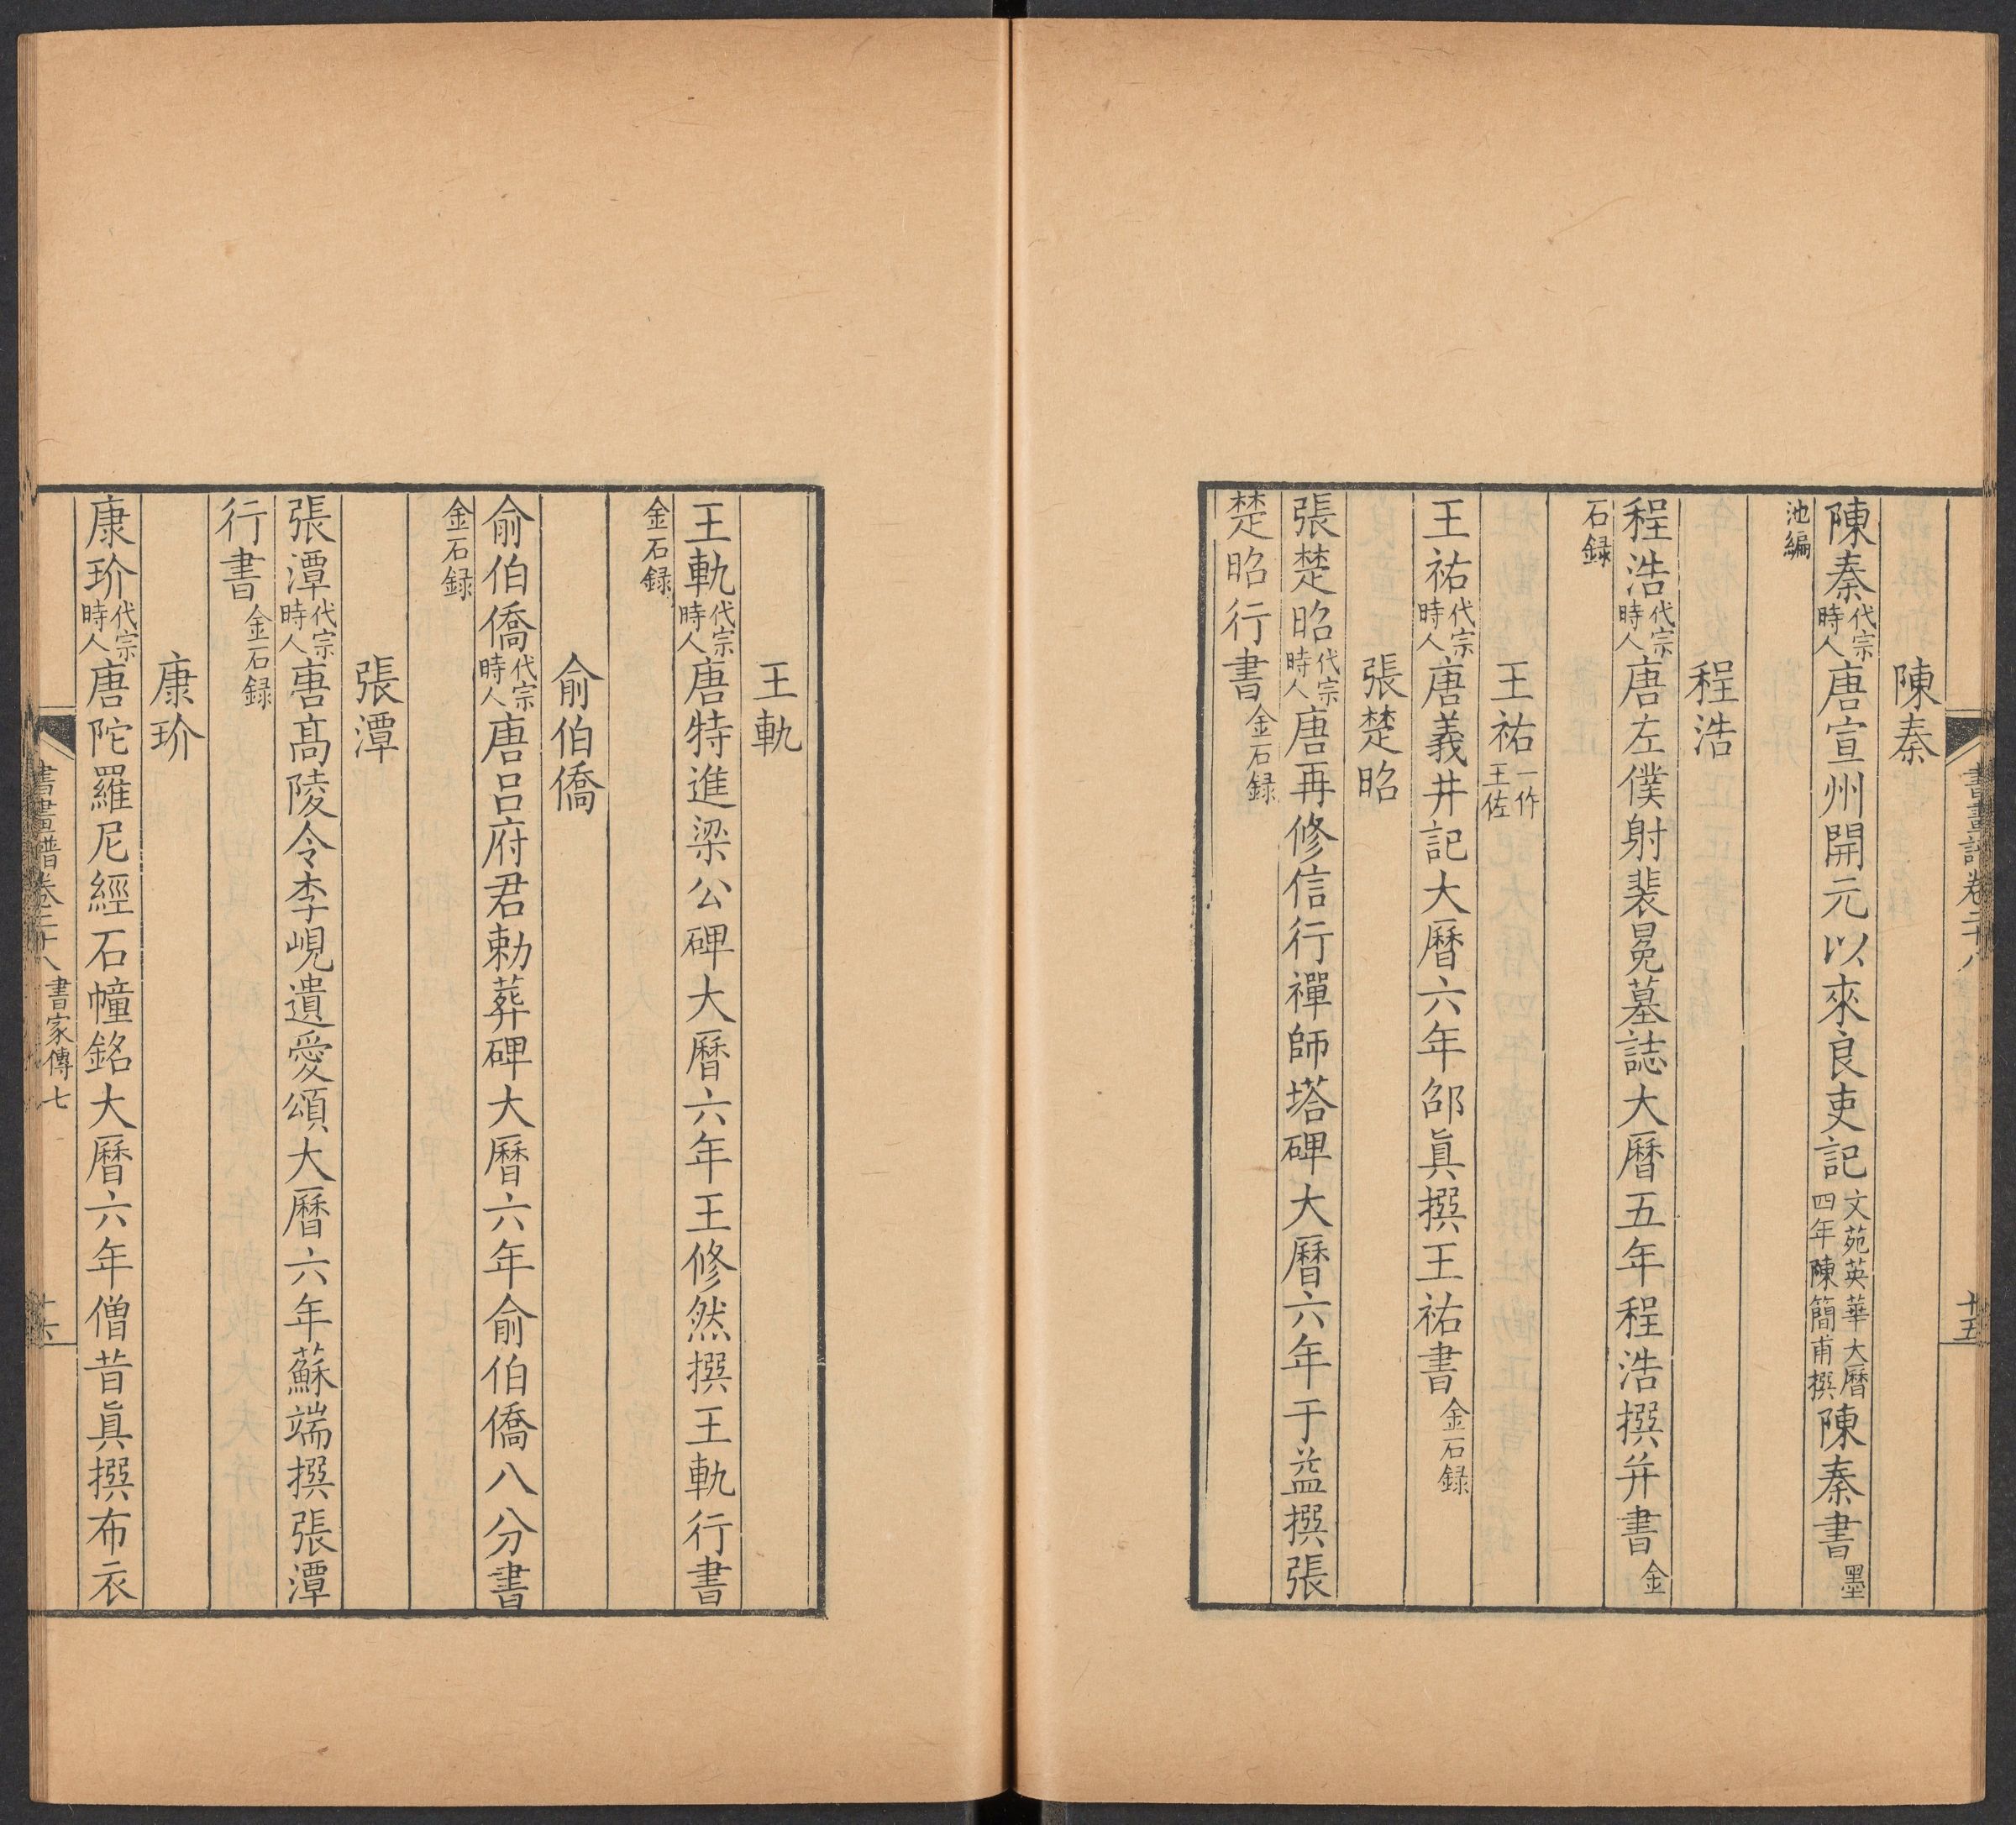 陳秦
陳秦代宗時人唐宣州開元以來良吏記文苑英華大曆四年陳簡甫撰陳秦書墨
池編
程浩
程浩代宗時人唐左僕射裴冕墓誌大曆五年程浩撰并書金
石録
王祐一作王佐
王祐代宗時人唐義井記大曆六年邵眞撰王祐書金石録
張楚昭
張楚昭代宗時人唐再修信行禪師塔碑大曆六年于益撰張
楚昭行書金石録
王軌
王軌代宗時人唐特進梁公碑大曆六年王修然撰王軌行書
金石録
俞伯僑
俞伯僑代宗時人唐呂府君勅葬碑大曆六年俞伯僑八分書
金石録
張潭
張潭代宗時人唐高陵令李峴遺愛頌大曆六年蘇端撰張潭
行書金石録
康玠
康玠代宗時人唐陀羅尼經石幢銘大曆六年僧昔眞撰布衣
書畫譜卷二十八 書家傳七